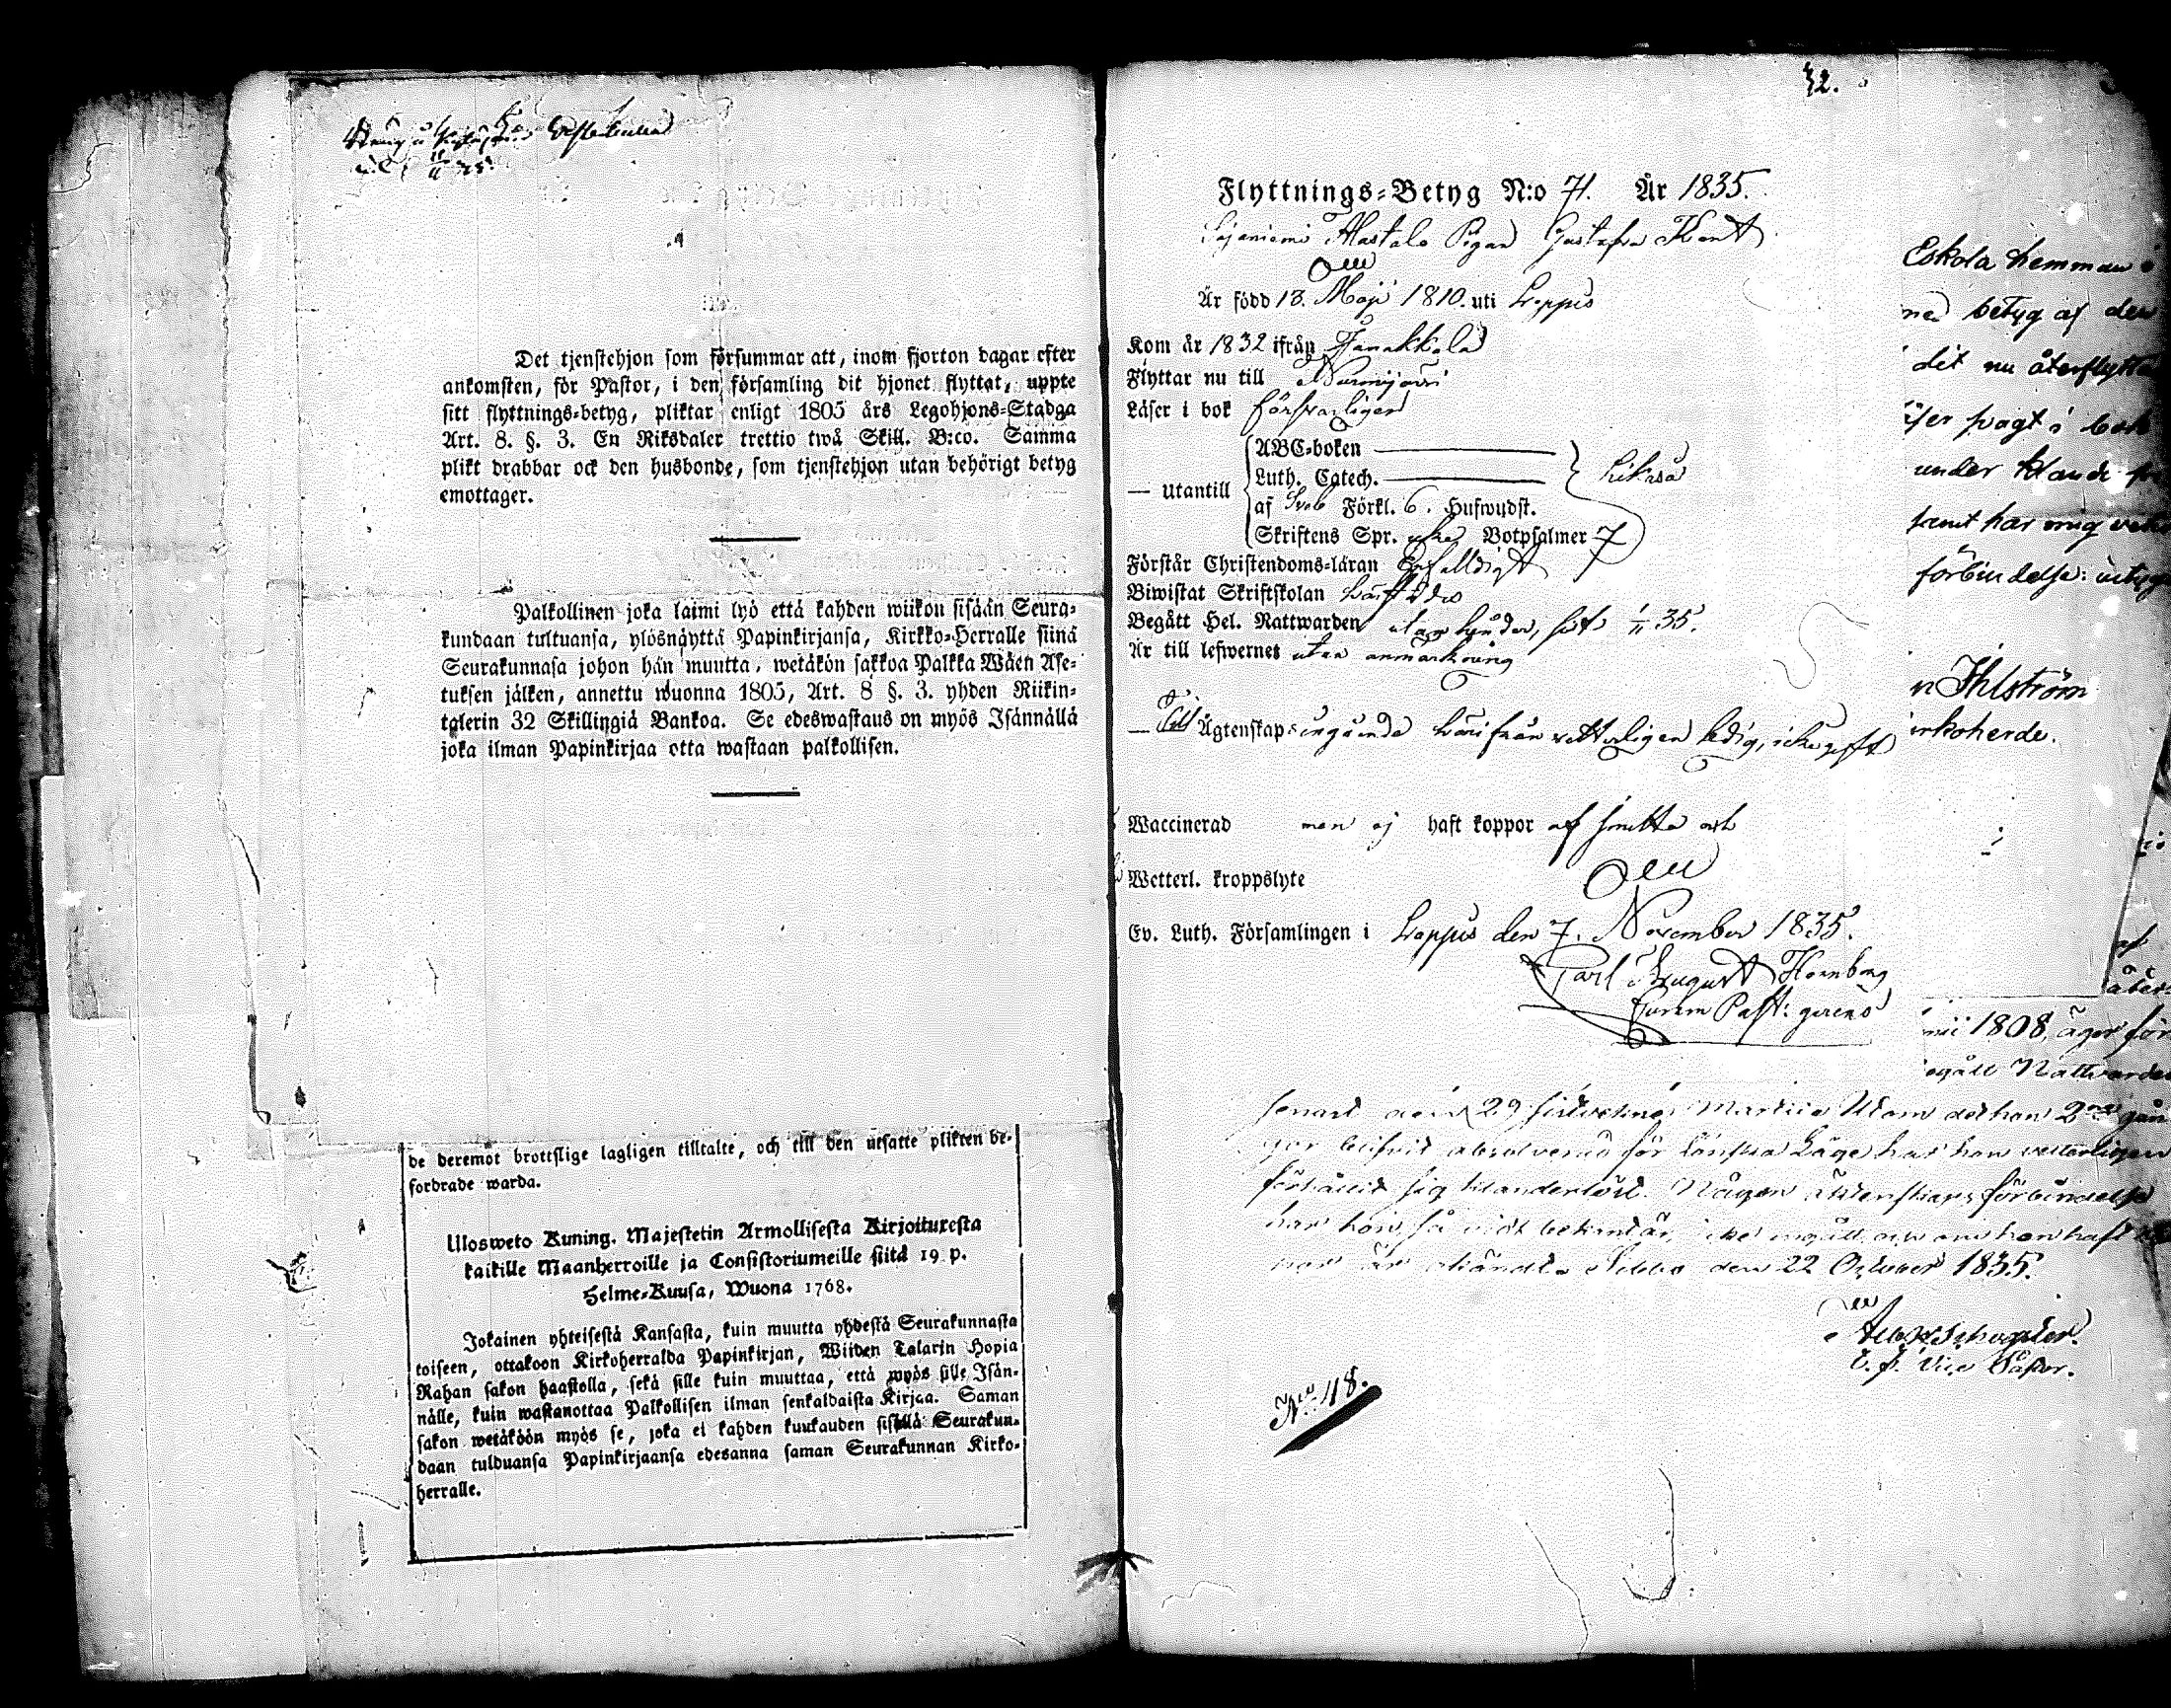 Det tjenstehjon som försummar att, inom fjorton dagar efter
ankomsten, för Pastor, i den församling dit hjonet flyttat, uppte
sitt flyttnings-betyg, pliktar enligt 1805 års Legohjons-Stadga
Art. 8. §. 3. En Riksdaler trettio twå Skill. B:co. Samma
plikt drabbar ock den husbonde, som tjenstehjon utan behörigt betyg
emottager.
Palkollinen joka laimi lyö että kahden wiikon sisään Seura-
kundaan tultuansa, ylösnäyttä Papinkirjansa, Kirkko-Herralle siinä
Seurakunnasa johon hän muutta, wetäkön sakkoa Palkka Wäen Ase-
tuksen jälken, annettu wuonna 1805, Art. 8 §. 3. yhden Riikin-
talerin 32 Skillingiä Bankoa. Se edeswastaus on myös Isännällä
joka ilman Papinkirjaa otta wastaan palkollisen.
de deremot brottslige lagligen tilltalte, och till den utsatte plikten be-
fordrade warda.
Ulosweto Kuning. Majestetin Armollisesta Kirjoituxesta
kaikille Maanherroille ja Consistoriumeille siitä 19 p.
Helme-Kuusa, Wuona 1768.
Jokainen yhteisestä Kansasta, kuin muutta yhdestä Seurakunnasta
toiseen, ottakoon Kirkoherralda Papinkirjan, Wiiden Talarin Hopia
Rahan sakon haastolla, sekä sille kuin muuttaa, että myös sille Isän-
nälle, kuin wastanottaa Palkollisen ilman senkaldaista Kirjaa. Saman
sakon wetäköön myös se, joka ei kahden kuukauden sisällä Seurakun-
daan tulduansa Papinkirjaansa edesanna saman Seurakunnan Kirko-
herralle.
32.
Flyttnings-Betyg N:o 71. År 1835.
Sajaniemi Alastalo Pigan Gustafva
Är född 13. Maji 1810. uti Loppis
Kom år 1832 ifrån Janakkala
Flyttar nu till Nurmijärvi
Läser i bok försvarligen
— Utantill
ABC-boken
Luth. Catech. likaså
af Sveb Förkl. 6. Hufwudst.
Skriftens Spr. icke Botpsalmer 7
Förstår Christendoms-läran Enfalldigt
Biwistat Skriftskolan
Begått Hel. Nattwarden sist 1/11 35.
Är till lefwernet utan anmärkning
— Till Ägtenskaps ingående härifrån vetterligen ledig, icke gift
Waccinerad men ej haft koppor af smitta och
Wetterl. kroppslyte
Ev. Luth. Församlingen i Loppis den 7. November 1835.
Carl August Hornborg
Past: gerens
Eskola hemman
med betyg af den
dit nu återflytta
i bok
under
samt har mig
förbindelse:
n Ihlström
rkoherde.
1808, äger för
Nattvarden
29 Martii Utom det han 2ne gån
absolverad för har han vetterligen
förhållit sig klanderlöst. Någon äktenskaps förbindelse
har han, så vidt bekant är, icke ingått,
Sibbo den 22 October 1835.
Vice Pastor.
No 118.